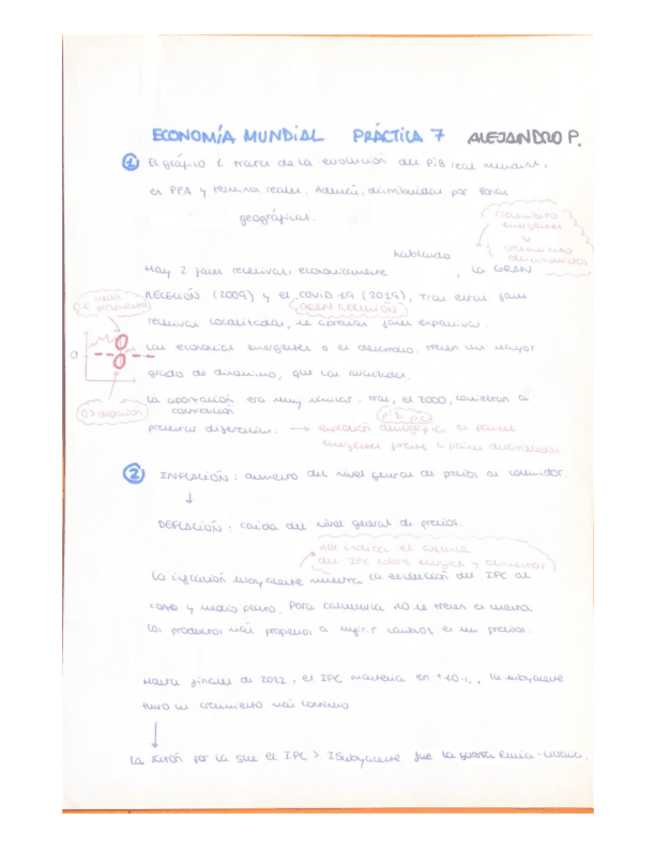 ECONOMÍA MUNDIAL PRÁCTICA 7 ALEJANDRO P.
1 El gráfico 1 trata de la evolución del PIB real mundial,
en PPA y términos reales. Además, distribuidas por zonas
geográficas.
crecimiento
emergentes
v
crecimiento
desarrollados
hablando
Hay 2 fases recesivas, económicamente , la GRAN
RECESIÓN (2009) y el covid-19 (2019), Tras estas fases
GRAN RECESIÓN
recesivas localizadas, se aprecian fases expansivas.
Las economías emergentes o en desarrollo, tienen un mayor
grado de dinamismo, que las avanzadas.
0
La aportación era muy similar, tras, el 2000, comienzan a
contribución
pib pc
presentar diferencias. → explosión demográfica en países
emergentes frente a países desarrollados.
2 INFLACIÓN: aumento del nivel general de precios al consumidor.
↓
DEFLACIÓN: caída del nivel general de precios.
nos indica el avance
del IPC sobre energía y alimentos
La inflación subyacente muestra la evolución del IPC al
corto y medio plazo. Para calcularla no se tienen en cuenta
los productos más propensos a sufrir cambios en sus precios.
Hasta finales de 2022, el IPC mantenía en +10%, la subyacente
tuvo un crecimiento más continuo
↓
La razón por la que el IPC > ISubyacente fue la guerra Rusia-Ucrania.